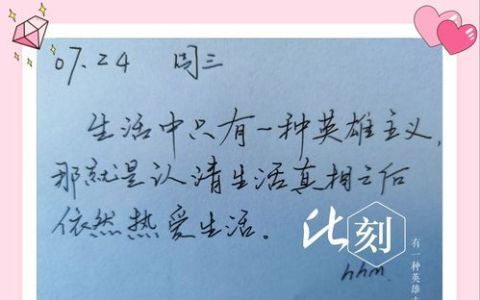 07.24 周三
生活中只有一种英雄主义,
那就是认清生活真相之后
依然热爱生活.
此刻
hhm.
有一种英雄